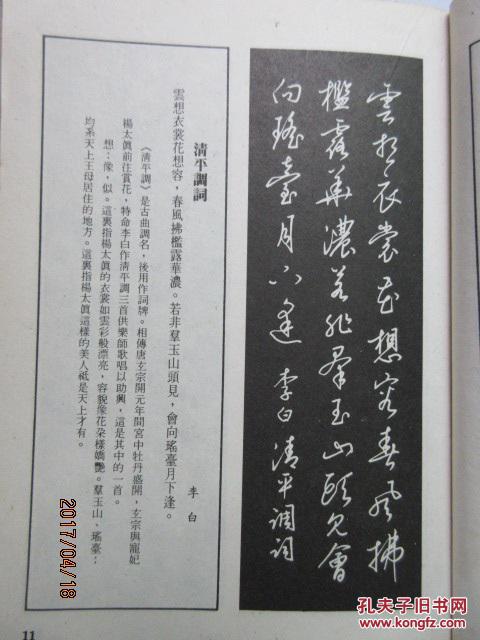 雲想衣裳花想容春風拂
檻露華濃若非羣玉山頭見會
向瑤臺月下逢 李白清平調詞
清平調詞
李白
雲想衣裳花想容，春風拂檻露華濃。若非羣玉山頭見，會向瑤臺月下逢。
《清平調》是古曲調名，後用作詞牌。相傳唐玄宗開元年間宮中牡丹盛開，玄宗與寵妃
楊太眞前注賞花，特命李白作淸平調三首供樂師歌唱以助興，這是其中的一首。
想：像，似。這裏指楊太眞的衣裳如雲彩般漂亮，容貌像花朵樣嬌艷。羣玉山、瑤臺：
均系天上王母居住的地方。這裏指楊太眞這樣的美人祗是天上才有。
11
2017/04/18
孔夫子旧书网
www.kongfz.com